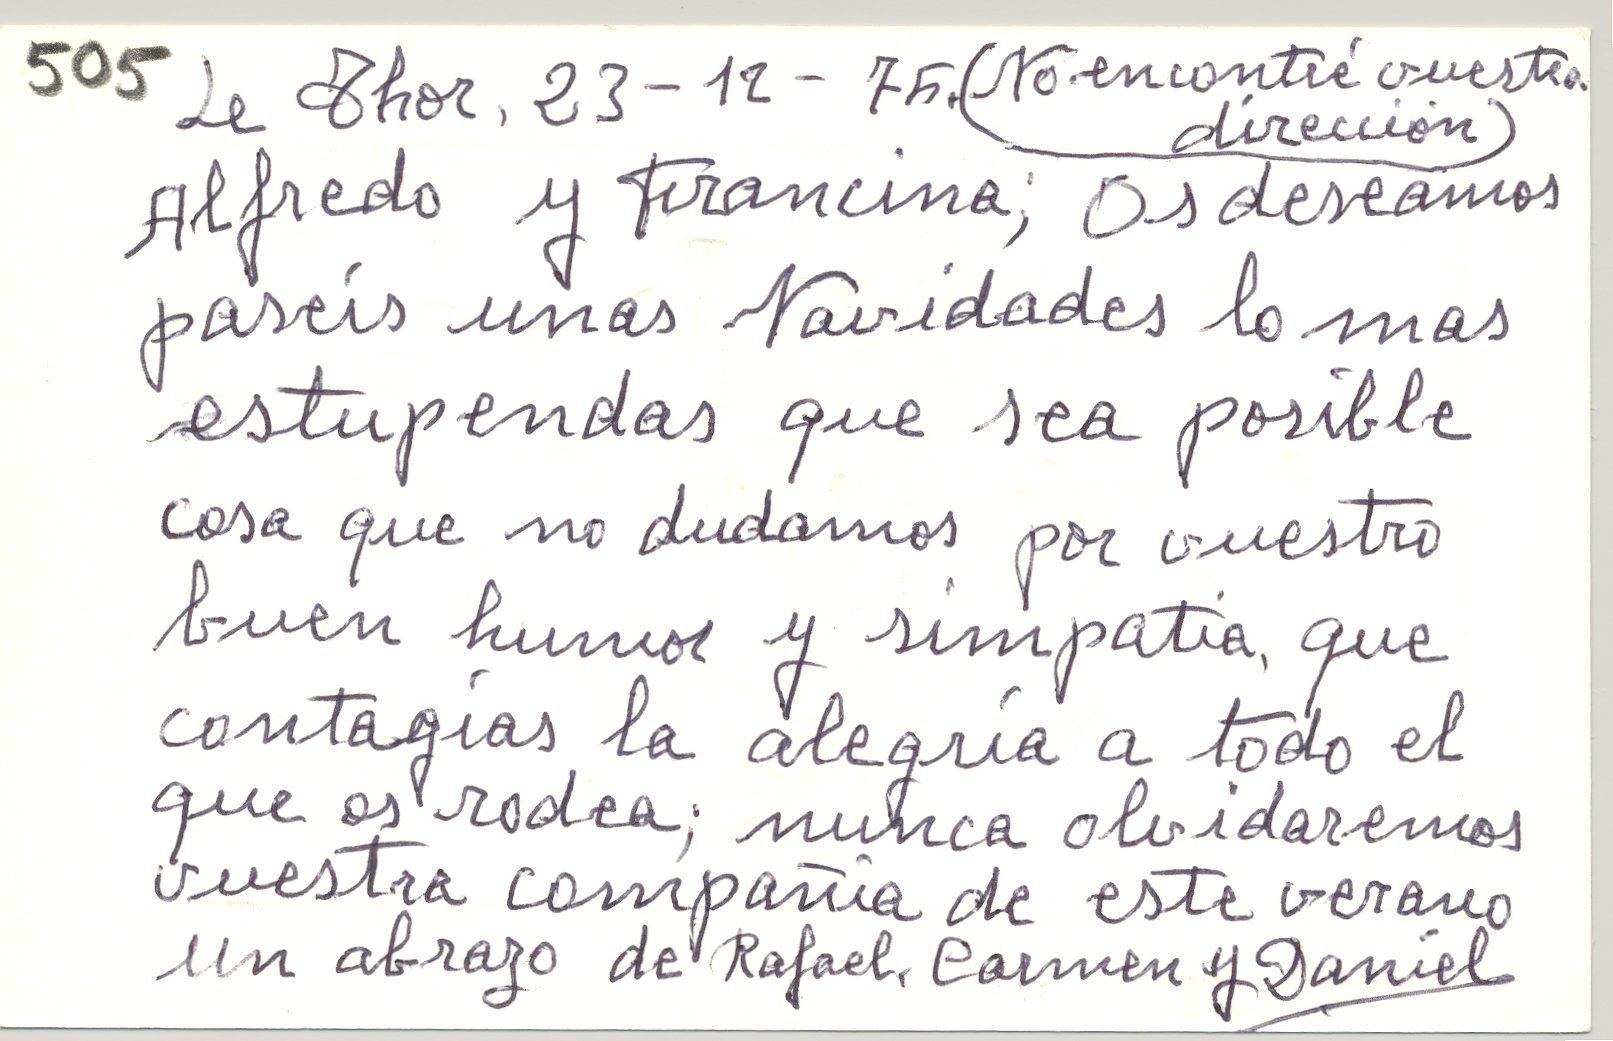 505 Le Thor, 23-12-75. (No encontré vuestra
dirección)
Alfredo y Francina; Os deseamos
paseis unas Navidades lo mas
estupendas que sea posible
cosa que no dudamos por vuestro
buen humor y simpatia, que
contagias la alegría a todo el
que os rodea; nunca olvidaremos
vuestra compañia de este verano
un abrazo de Rafael, Carmen y Daniel